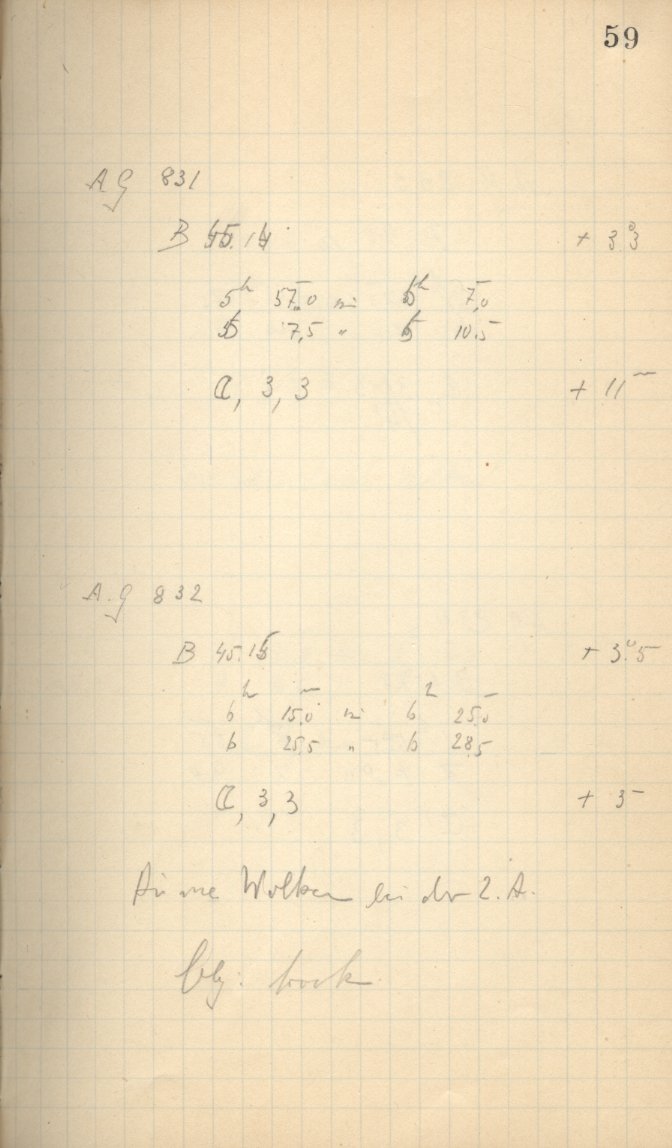 59
A.G 831
B 45.14 + 3.°3
5h 57,0 bis 6h 7,0
6 7,5 " 6 10,5
C, 3, 3 + 11m
A.G 832
B 45.15 + 3.°5
6h 15,0m bis 6h 25,0
6 25,5 " 6 28,5
C, 3, 3 + 3
Dünne Wolken bei der 2. A.